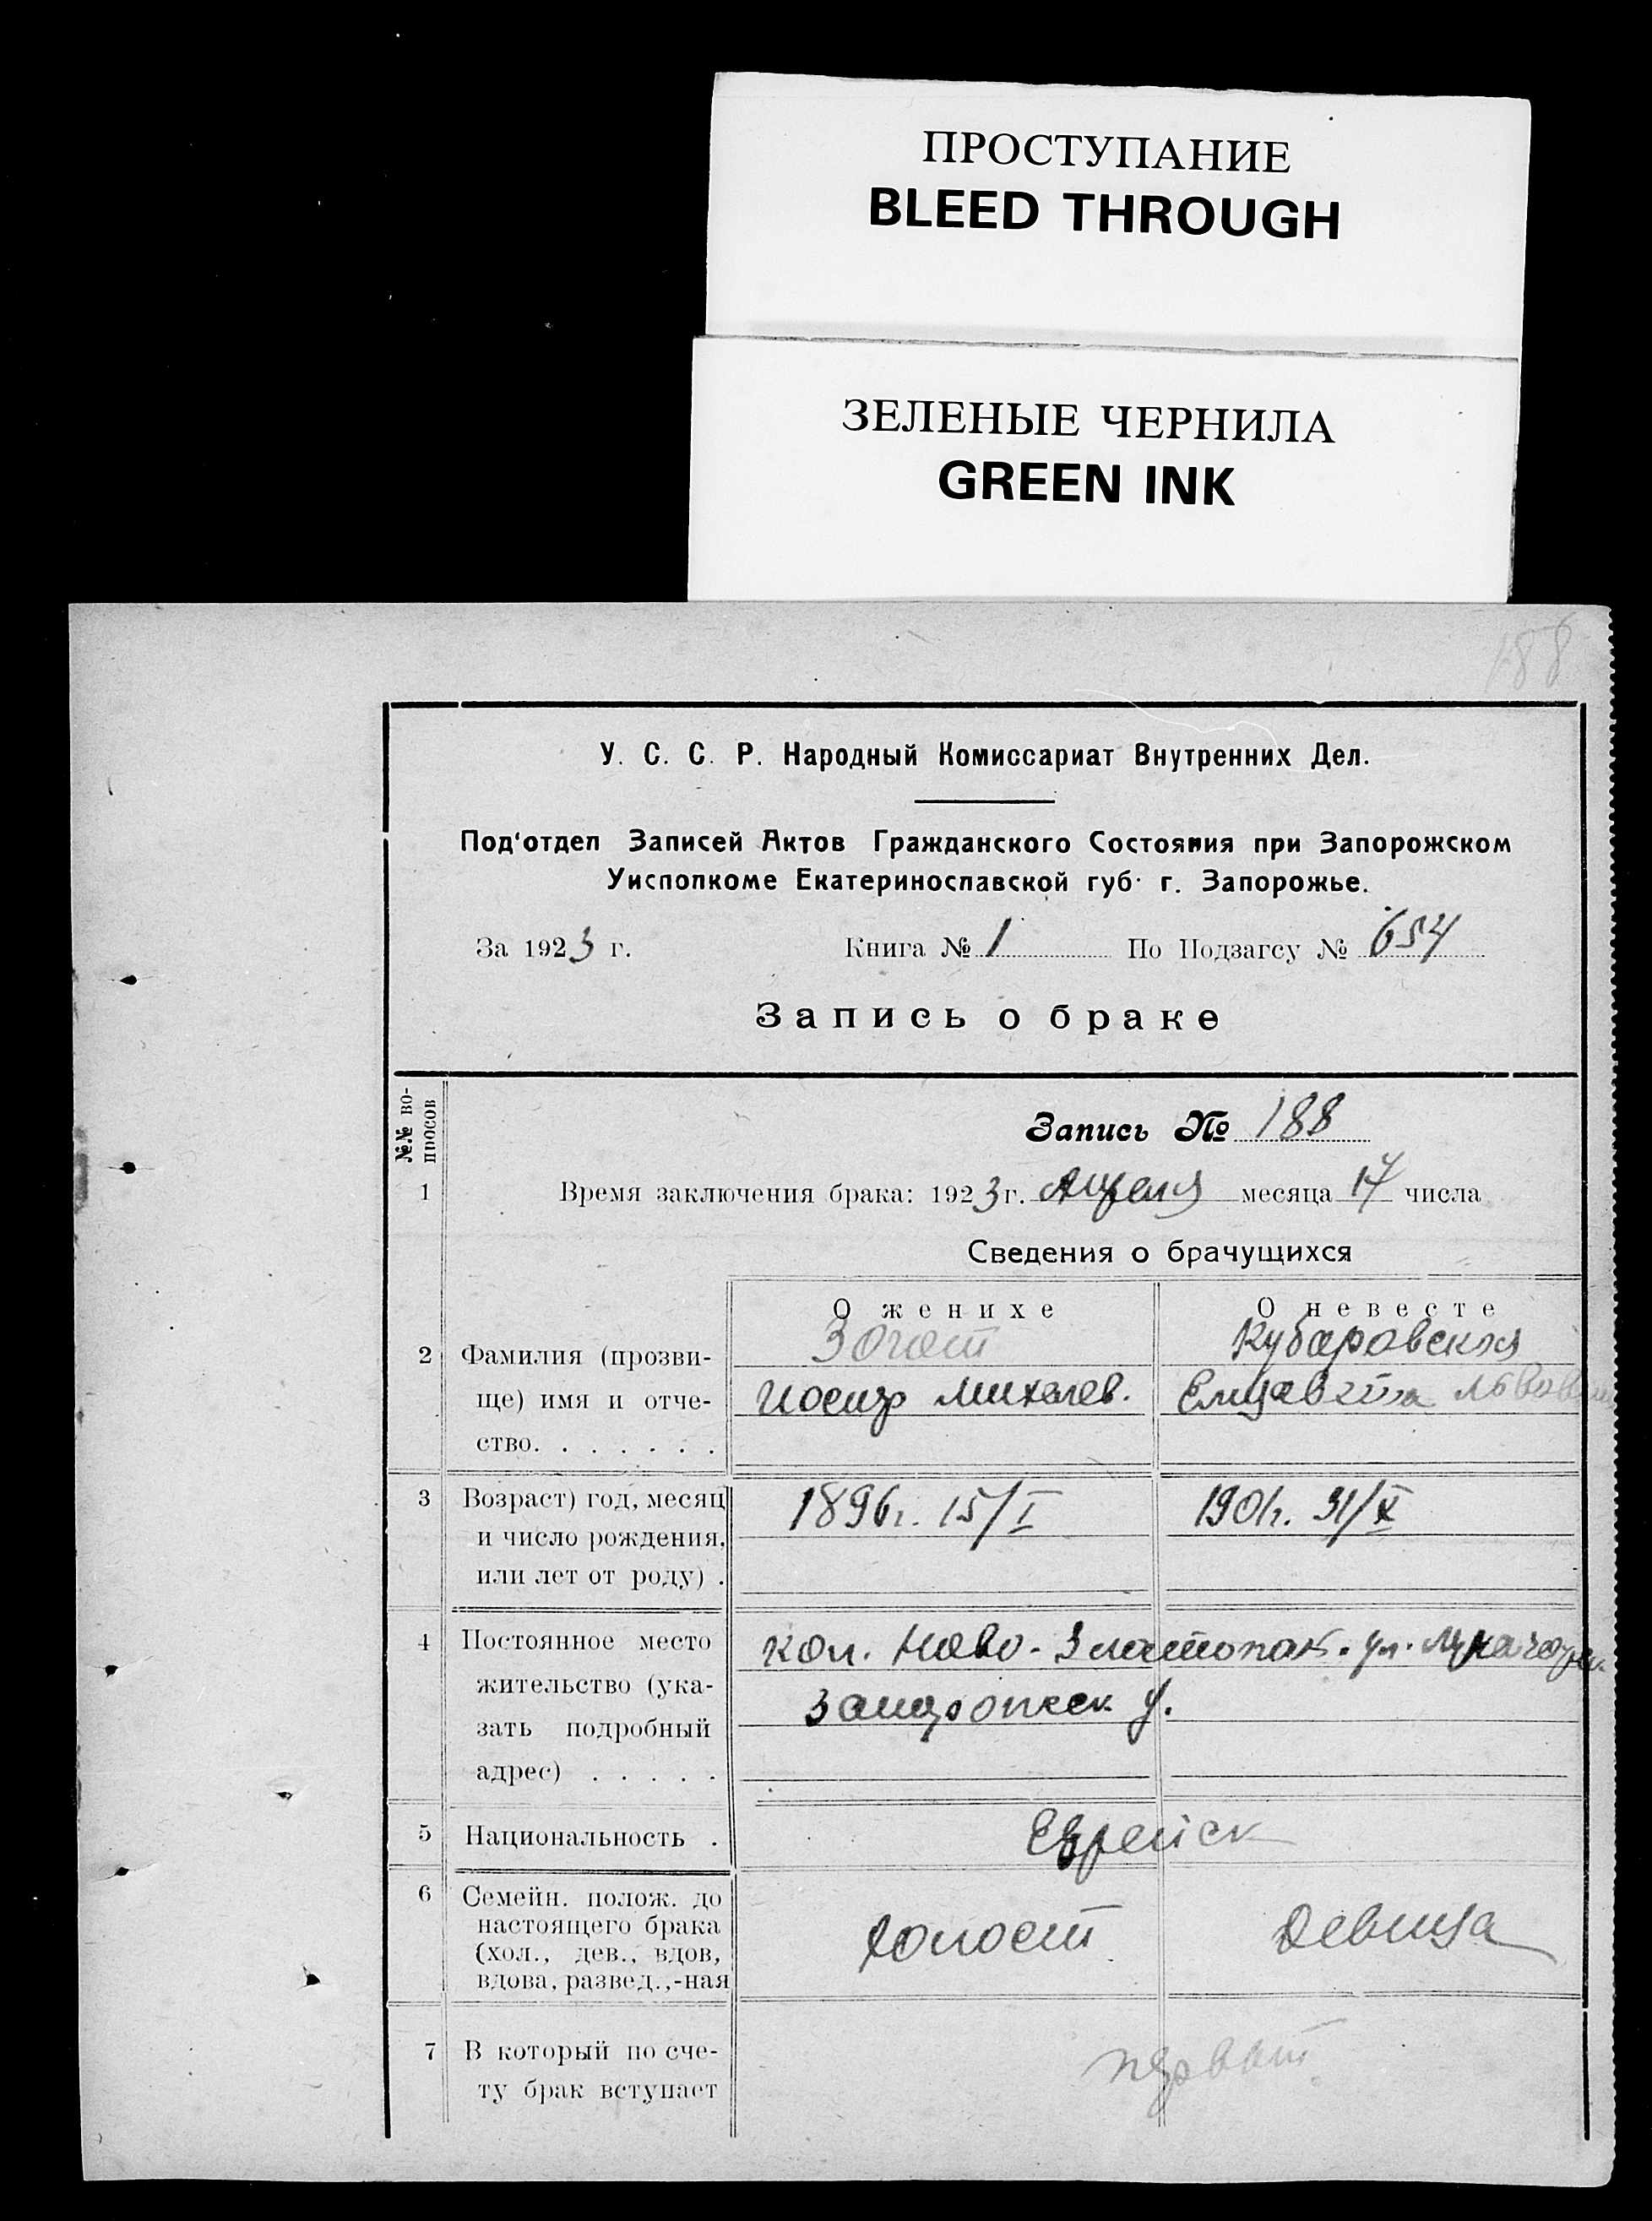 ПРОСТУПАНИЕ
BLEED THROUGH
ЗЕЛЕНЫЕ ЧЕРНИЛА
GREEN INK
188
У. С. С. Р. Народный Комиссариат Внутренних Дел.
Под‘отдел Записей Актов Гражданского Состояния при Запорожском
Уисполкоме Екатеринославской губ. г. Запорожье.
За 1923 г. Книга № 1 По Подзагсу № 654
Запись о браке
№№ во-
просов
Запись № 188
1 Время заключения брака: 1923 г. Апреля месяца 17 числа
Сведения о брачущихся
О женихе О невесте
2 Фамилия (прозви- Кубаровская
ще) имя и отче- Иосиф Михелев. Елизавета Львов
ство. . . . . . .
3 Возраст) год, месяц 1896г. 15/I 1901г. 31/X
и число рождения,
или лет от роду) .
4 Постоянное место Кол. Ново-Златопол. ул.
жительство (ука- Запорожск у.
зать подробный
адрес) . . . . .
5 Национальность . Еврейск
6 Семейн. полож. до
настоящего брака холост девица
(хол., дев., вдов,
вдова, развед.,-ная
7 В который по сче- первый
ту брак вступает